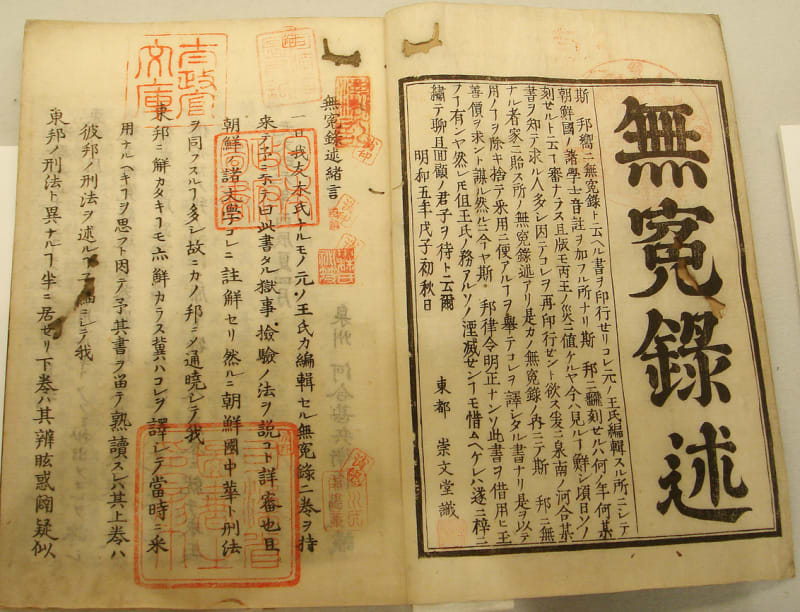 無冤錄述
斯 邦嚮ニ無冤錄ト云ヘル書ヲ印行セリコレ元ノ王氏編輯スル所ニシテ
朝鮮國ノ諸學士音註ヲ加フル所ナリ斯 邦ニ飜刻セルハ何ノ年何某
刻セルト云ー審ナラス且版モ丙王ノ災ニ値ケルヤ今ハ見ルー鮮シ頃日ソノ
書ヲ知テ求ル人多シ因テコレヲ再印行セント欲ス爰ニ泉南ノ河合某
ナル者家ニ貽ス所ノ無冤錄述アリ是カノ無冤錄ノ內ニテ斯 邦ニ無
用ノーヲ除キ捨テ采用ニ便アルーヲ擧テコレヲ譯シタル書ナリ是ヲ以テ
善價ヲ求ント謀ル然ルニ今ヤ斯 邦律令明正ナンソ此書ヲ借用ヒ王
フー有ンヤ然レ𪜈但王氏ノ務アルソノ湮滅センーモ惜ムヘケレハ遂ニ梓ニ
繡テ聊且面顧ノ君子ヲ待ト云爾
明和五年戊子初秋日
東都 崇文堂識
無冤錄述緒言
一日我友本氏ナルモノ元ノ王氏カ編輯セル無冤錄二卷ヲ持
來テ予ニ示テ曰此書タル獄事撿驗ノ法ヲ說コト詳審也且
朝鮮ノ諸大學コレニ註解セリ然ルニ朝鮮國中華ト刑法
ヲ同フスルー多シ故ニカノ邦ニメ通曉シテ我
東邦ニ解カタキーモ亦鮮カラス冀ハコレヲ譯シテ當時ニ采
用ナルヘキーヲ思フト因テ予其書ヲ留テ熟讀スレハ其上卷ハ
彼邦ノ刑法ヲ述ル編ニシテ我
東邦ノ刑法ト異ナルー半ニ居セリ下卷ハ其辨眩惑闢疑似
太政官
文庫